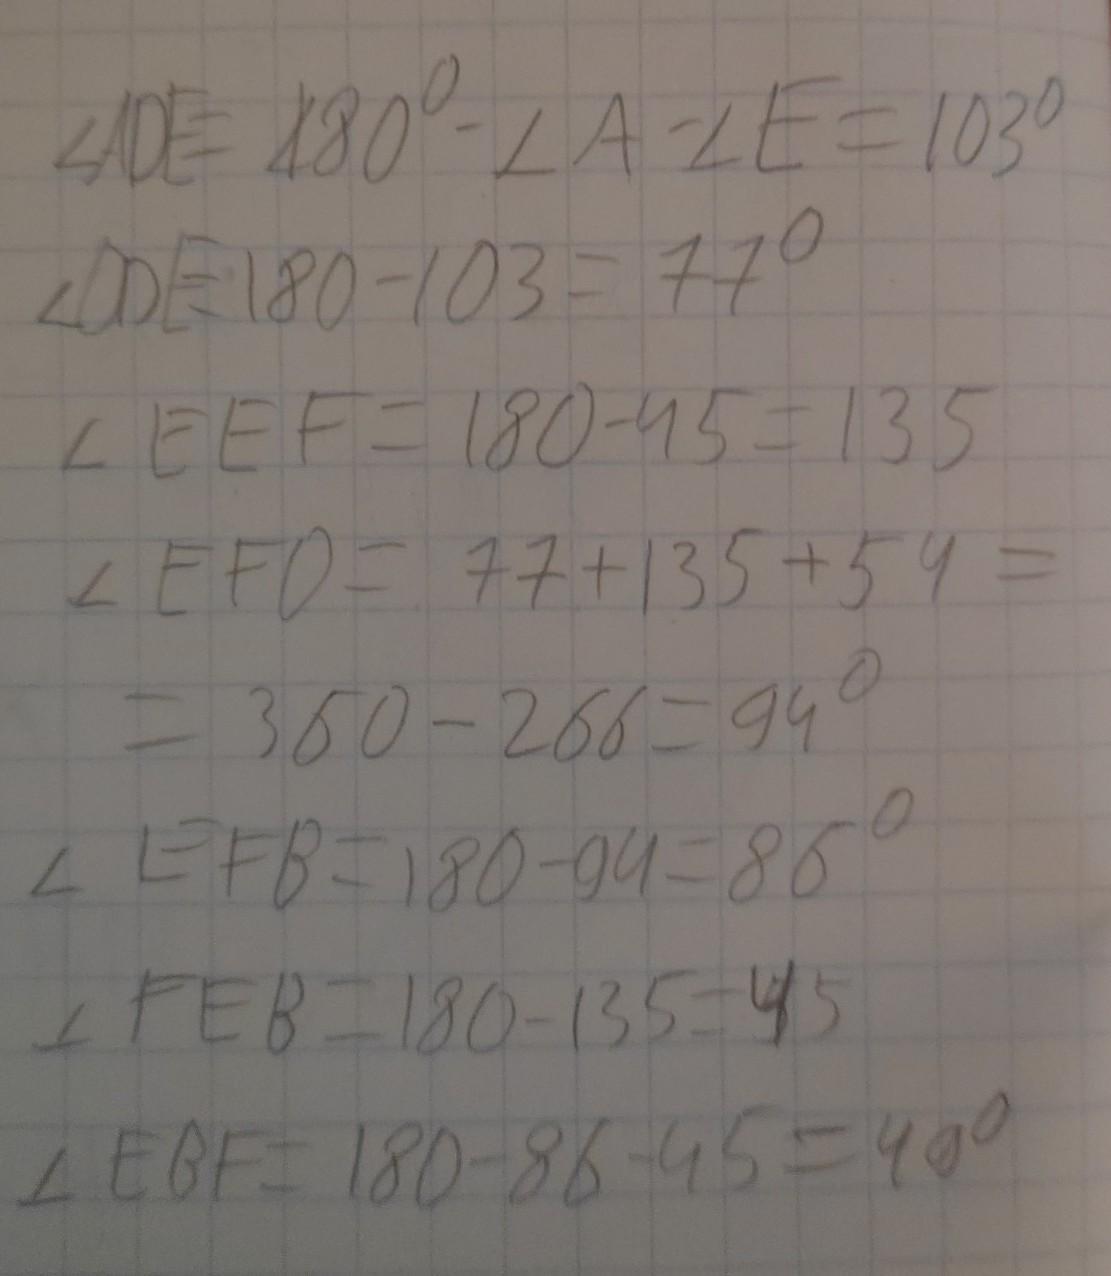 ∠ADE = 180° - ∠A - ∠E = 103°
∠DDE = 180 - 103 = 77°
∠EEF = 180 - 45 = 135
∠EFD = 77 + 135 + 54 =
= 360 - 266 = 94°
∠EFB = 180 - 94 = 86°
∠FEB = 180 - 135 = 45
∠EBF = 180 - 86 - 45 = 40°